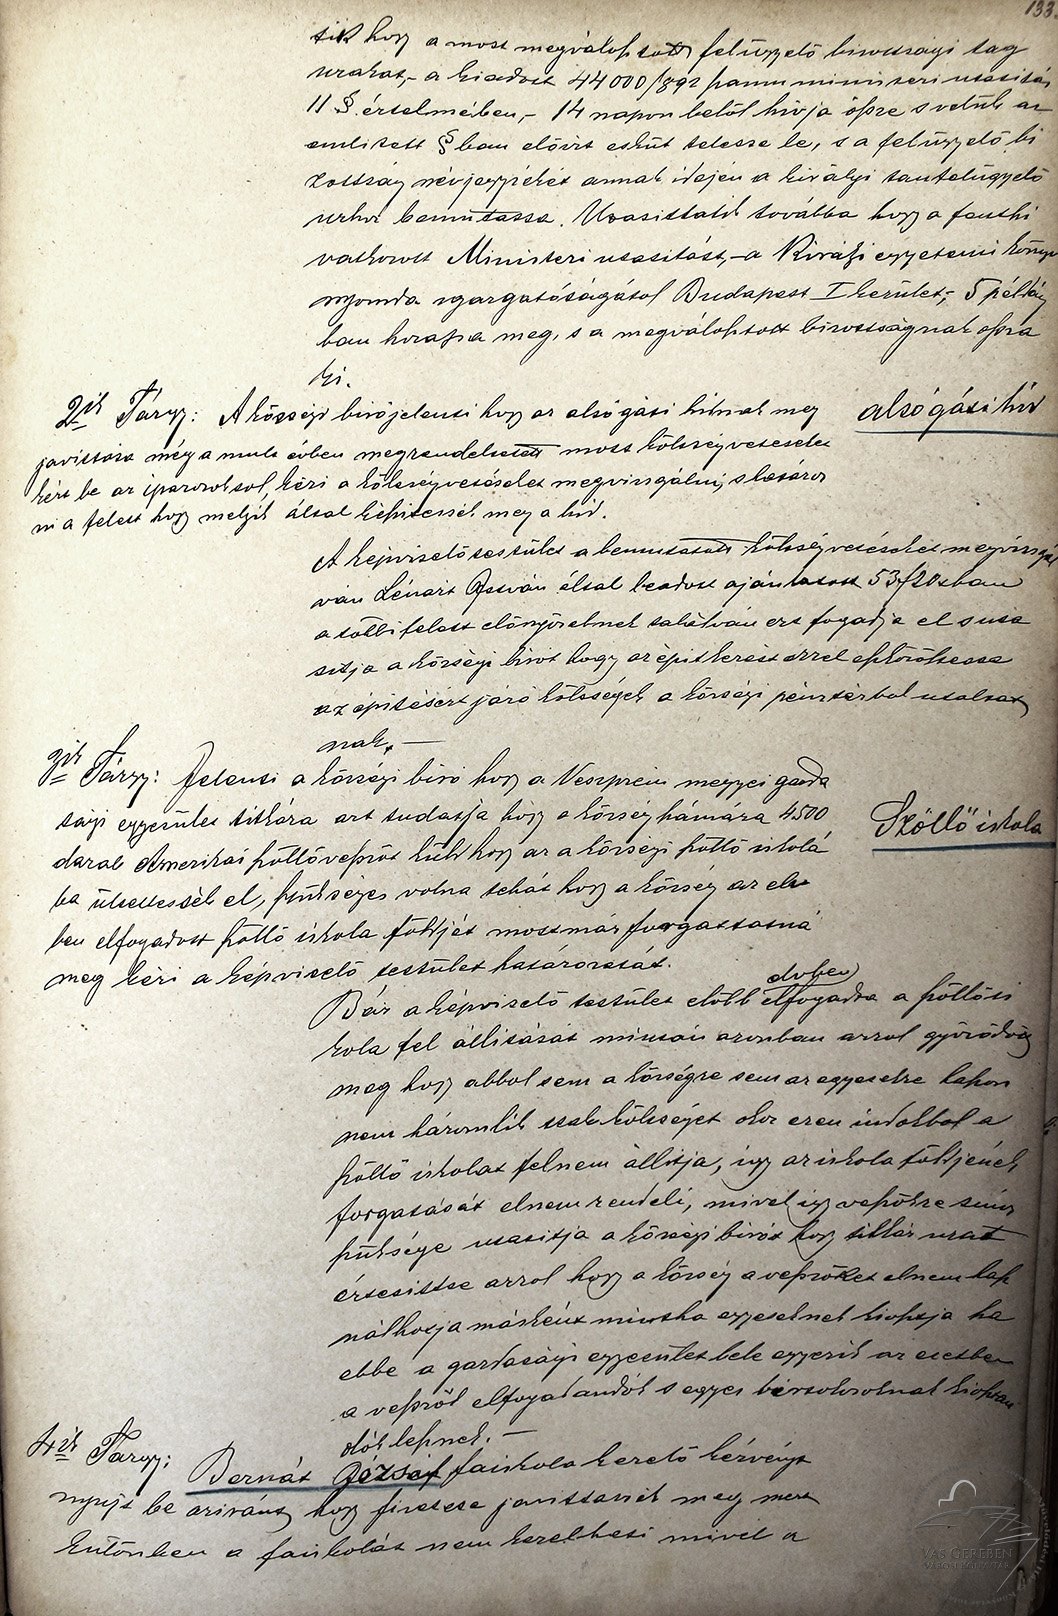 133
tik hogy a most megválasztott felügyelő bizottsági tag
urakat,- a kiadott 44000/892 számu ministeri utasitás
11 § értelmében,- 14 napon belöl hivja össze s velük az
emlitett § ban előirt esküt tetesse le, s a felügyelő bi
zottság névjegyzékét annak idején a királyi tanfelügyelő
urhoz bemutassa. Utasittatik továbba hogy a fenthi
vatkozott Ministeri utasitást,- a Királyi egyetemi könyv
nyomda igazgatóságátol Budapest I kerület,- 5 példány
ban hozassa meg, s a megválasztott bizottságnak ossza
ki.
2ik Tárgy: A községi biró jelenti hogy az alsógázi hidnak meg
alsógázi hid
javittása még a mult évben megrendeltetett most költségvetéseket
kért be az iparosoktol, kéri a költségvetéseket megvizsgálni, s határoz
ni a felett hogy melyik általképitessék meg a hid.
A képviselő testület a bemutatott költségvetéseket megvizsgál
ván Lénárt István által beadott ajánlatott 53f20xrban
a többi felett előnyösebnek találván ezt fogadja el s uta
sitja a községi birót hogy az épitkezést ezzel eszközöltesse
az épitésért járó költségek a községi pénztárbol utaltat
nak. —
3ik Tárgy: Jelenti a községi biró hogy a Veszprém megyei gazda
sági egyesület titkára azt tudatja hogy a község számára 4500
Szőllő iskola
darab Amerikai szőllővesszőt küld hogy az a községi szőllő iskolá
ba ültettessék el, szükséges volna tehát hogy a község az elv
ben elfogadott szőllő iskola földjét mostmár forgattatná
meg kéri a képviselő testület határozatát.
elvben
Bár a képviselő testület előbb elfogadta a szőllő is
kola fel állitását miután azonban arrol győződött
meg hogy abbol sem a községre sem az egyesekre haszon
nem háromlik csak költséget okoz ezen indokbol a
szőllő iskolát fel nem állitja, igy az iskola földjének
forgatását el nem rendeli, mivel igy vesszőkre sincs
szüksége utasitja a községi birót hogy titkár urat
értesittse arrol hogy a község a vesszőket el nem hasz
nálhatja másként mintha egyeseknek kiosztja ha
ebbe a gazdasági egyesület bele egyezik az esetben
a vesszők elfogadandók s egyes birtokosoknak kiosztan
dók lesznek. —
4ik Tárgy: Bernát József faiskola kezelő kérvényt
nyujt be aziránt, hogy fizetése javittassék meg mert
különben a faiskolát nem kezelheti mivel a
VAS GEREBEN
VÁROSI KÖNYVTÁR